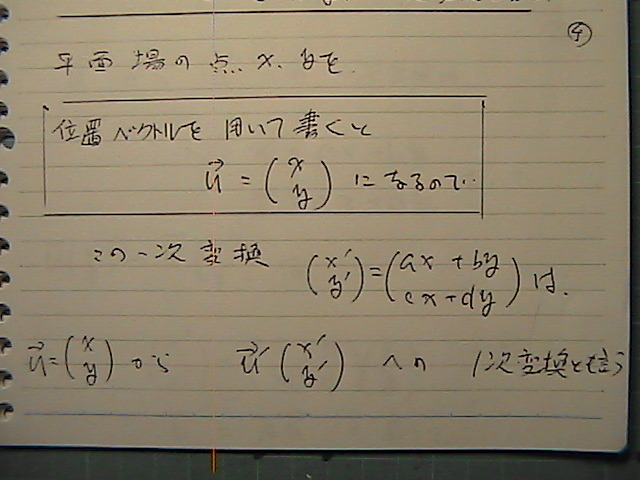 ④
平面場の点 x, yを
位置ベクトルを用いて書くと
$\vec{u} = \begin{pmatrix} x \\ y \end{pmatrix}$ になるので…
この一次変換 $\begin{pmatrix} x' \\ y' \end{pmatrix} = \begin{pmatrix} ax + by \\ cx + dy \end{pmatrix}$ は、
$\vec{u} = \begin{pmatrix} x \\ y \end{pmatrix}$ から $\vec{u}' \begin{pmatrix} x' \\ y' \end{pmatrix}$ への 1次変換と言う